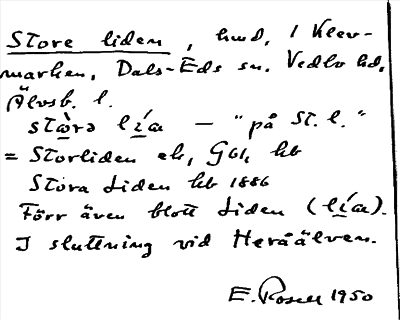 Store liden, hmd, i Klev-
marken, Dals-Eds sn. Vedbo hd,
Älvsb. l.
stὼrə lía — "på St. l."
= Storliden ek, Gbl, kb
Stora Liden kb 1886
Förr även blott Liden (lía).
I sluttning vid Heråälven.
E. Rosell 1950